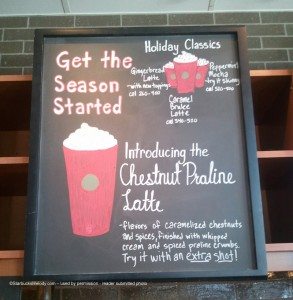 Get the
Season
Started
Holiday Classics
Gingerbread
Latte
-with new toppings
cal 260-400
Peppermint
Mocha
try it skinny
Caramel
Brulee
Latte
Introducing the
Chestnut Praline
Latte
-flavors of caramelized chestnuts
and spices, finished with whipped
cream and spiced praline crumbs.
Try it with an extra shot!
©StarbucksMelody.com -- used by permission - reader submitted photo